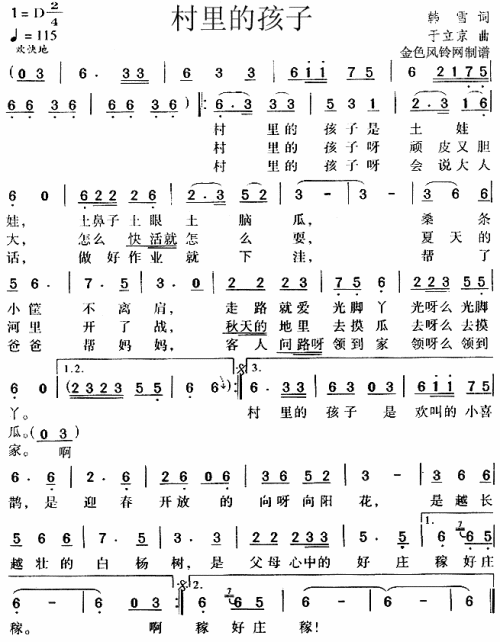 1=D 2/4 村里的孩子
♩=115 韩雪 词
欢快地 于立京 曲
金色风铃网制谱
(0 3 | 6. 33 | 6 3 | 6 11 75 | 6 2175 |
66 36 | 66 36) ‖: 6.3 33 | 531 | 2.3 16 |
村 里的 孩子是 土 娃
村 里的 孩子呀 顽皮又胆
村 里的 孩子呀 会说大人
6 0 | 622 26 | 2 52 | 3 - | 3 - | 3 6 6 |
娃, 土鼻子土眼 土 脑 瓜, 桑 条
大, 怎么 快活就 怎 么 耍, 夏 天 的
话, 做好作业 就 下 洼, 帮 了
5 6. | 7. 5 | 3. 0 | 2 2 23 | 75 6 | 223 55 |
小筐 不 离 肩, 走 路 就爱 光脚 丫 光呀么 光脚
河里 开 了 战, 秋天的 地 里 去摸 瓜 去呀么 去摸
爸爸 帮 妈 妈, 客 人 问路呀 领到 家 领呀么 领到
1.2. 3.
6 0 | (2323 55 | 6 6) :‖ 6. 33 | 63 03 | 611 75 |
丫。 村 里的 孩子 是 欢叫的 小喜
瓜。(0 3)
家。 啊
6. 6 | 2. 6 | 26 06 | 36 52 | 3 - | 3 6 6 |
鹊, 是 迎 春 开放 的 向呀 向阳 花, 是 越 长
5 6 6 | 7. 5 | 3. 3 | 22 233 | 5. 5 | 6 65 |
越 壮 的 白 杨 树, 是 父母 心中的 好 庄 稼 好庄
1.
2.
6 - | 6 03 :‖ 6 65 | 6 - | 6 - | 6 0 ‖
稼。 啊 稼 好 庄 稼!